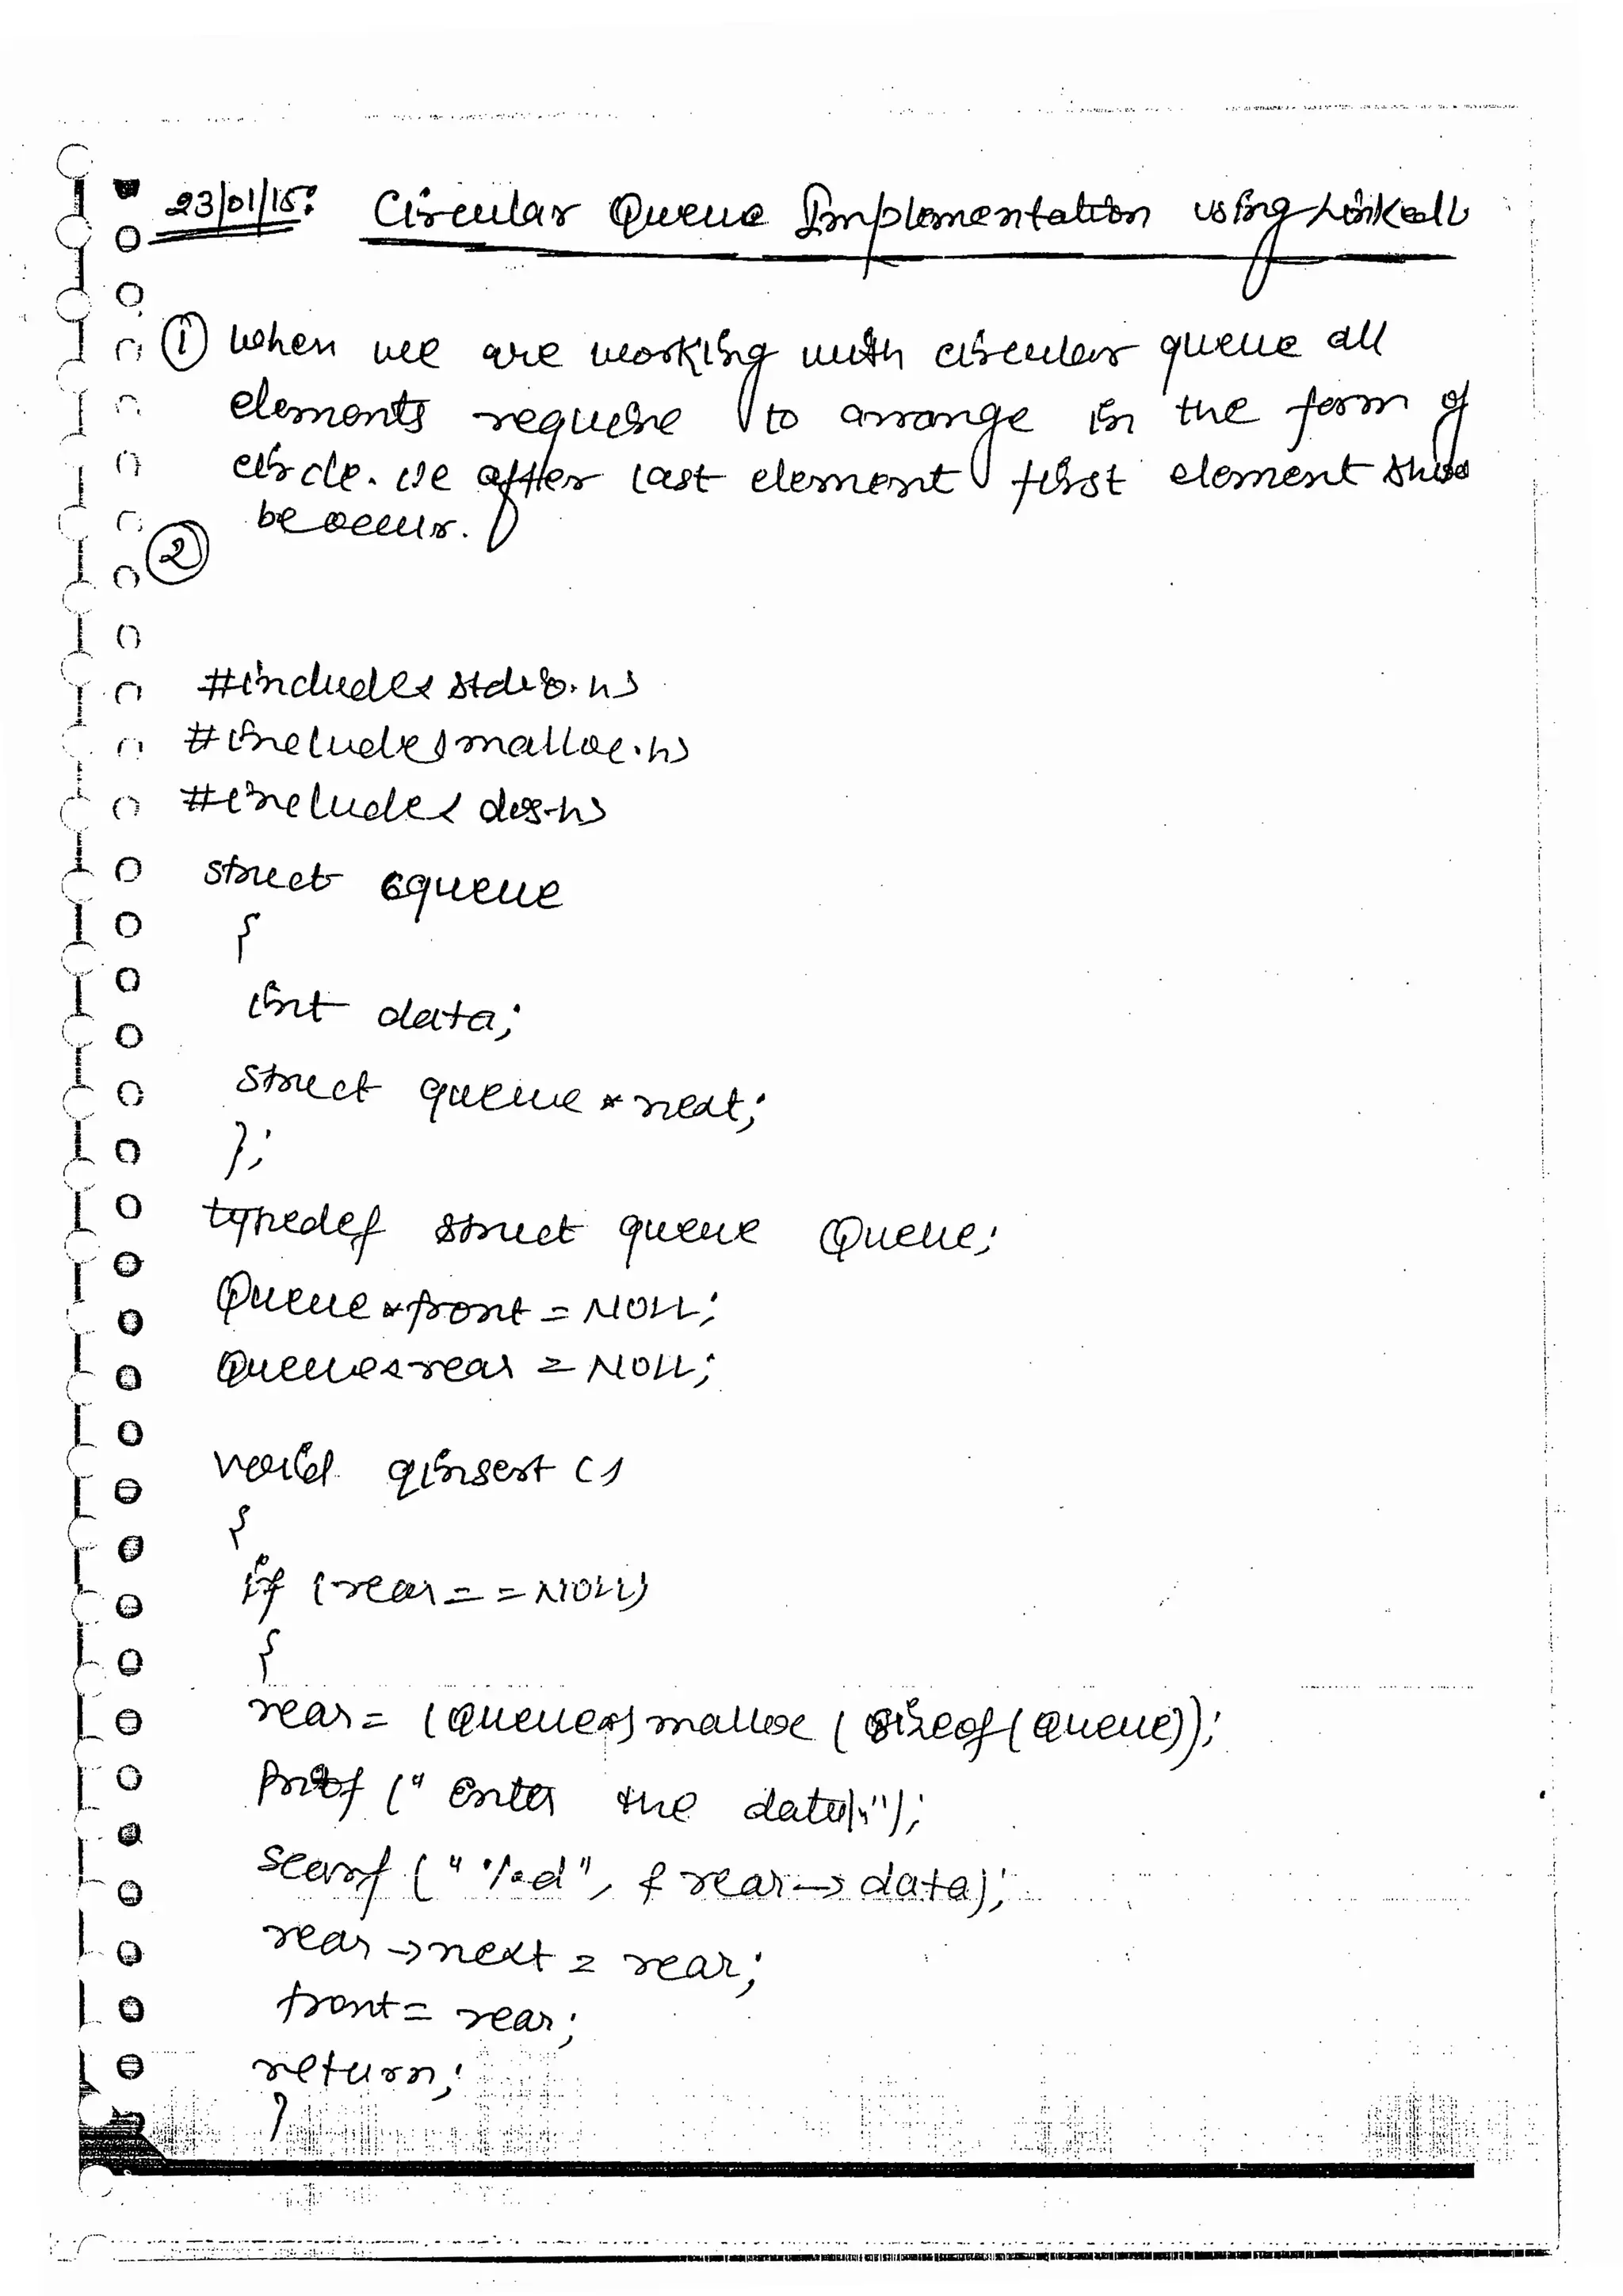 23/01/15: Circular Queue Implementation using Linkedl
① When we are working with circular queue all
elements require to arrange in the form of
circle. ie after last element first element
be occur.
②
#include<stdio.h>
#include<malloc.h>
#include<dos.h>
struct cqueue
{
int data;
struct queue *next;
};
typedef struct queue Queue;
Queue *front = NULL;
Queue *rear = NULL;
void qinsert ()
{
if (rear == NULL)
{
rear = (Queue*) malloc (sizeof(Queue));
Printf (" Enter the data\n");
scanf (" %d", & rear->data);
rear->next = rear;
front = rear;
return;
}